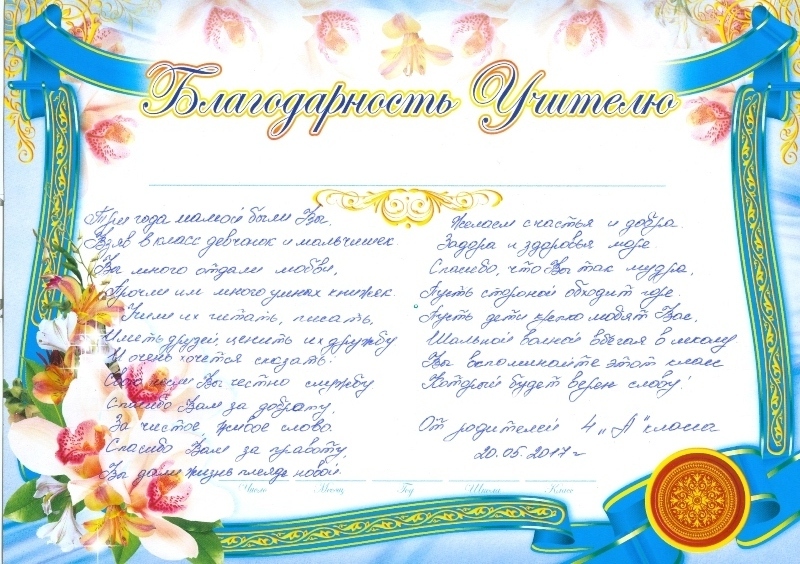 Благодарность Учителю
Три года мамой были Вы.
Взяв в класс девчонок и мальчишек.
Вы много отдали любви,
Прочли им много умных книжек.
Учили их читать, писать,
Иметь друзей, ценить их дружбу
И очень хочется сказать:
Свою несли Вы честно службу
Спасибо Вам за доброту,
За чистое, живое слово
Спасибо Вам за правоту,
Вы дали жизнь плеяде новой.
Желаем счастья и добра.
Задора и здоровья море
Спасибо, что Вы так мудра,
Пусть стороной обходит горе
Пусть дети крепко любят Вас,
Шальной волной вбегая в школу
Вы вспоминайте этот класс
Который будет верен слову!
От родителей 4 "А" класса
20.05.2017 г
Число Месяц Год Школа Класс